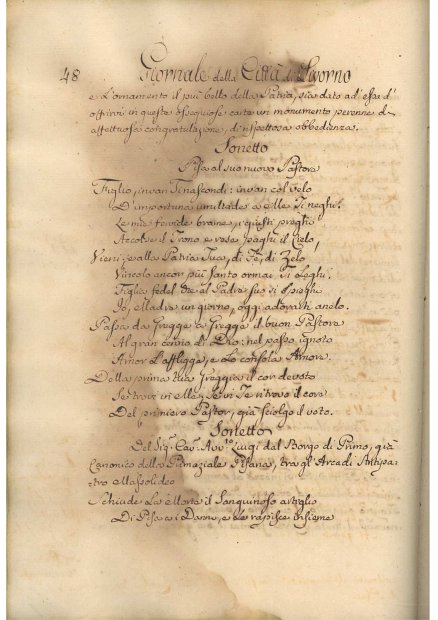 48 Giornale della Città di Livorno
e l'ornamento il più bello della Patria, sia dato ad essa d'
offrirvi in queste ossequiose carte un monumento perenne d'
affettuosa congratulazione, di rispettosa obbedienza.
Sonetto
Pisa al suo nuovo Pastore
Figlio, invan Ti nascondi: invan col velo
D'importuna umiltade a Me Ti neghi.
Le mie fervide brame, i giusti preghi
Accolse il Trono, e rese paghi il Cielo,
Vieni: alla Patria Tua, di Fè, di Zelo
Vincolo ancor più santo ormai Ti leghi.
Figlia fedel che al Padre suo si pieghi
Io, Madre un giorno, oggi adorarti anelo.
Passa da Gregge a Gregge il buon Pastore
Al gran cenno di Dio: nel passo ignoto
Amor L'affligge, e Lo consola Amore.
Della prima Tua Greggia il cor devoto
Se trovi in Me, se in Te ritrovo il core
Del primiero Pastor, già sciolgo il voto.
Sonetto
Del Sig.r Cav. Avv.to Luigi dal Borgo di Primo, già
Canonico della Primaziale Pisana, tra gli Arcadi Antipa-
tro Massolideo
Schiude la Morte il sanguinoso artiglio
Di Pisa ai Danni, e Le rapisce insieme